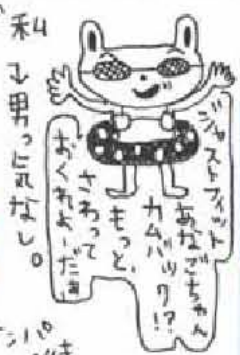 ジャストフィット
あなごちゃん
カムバック!?
もっと、
さわって
おくれよーだ
私
男っ気なし。